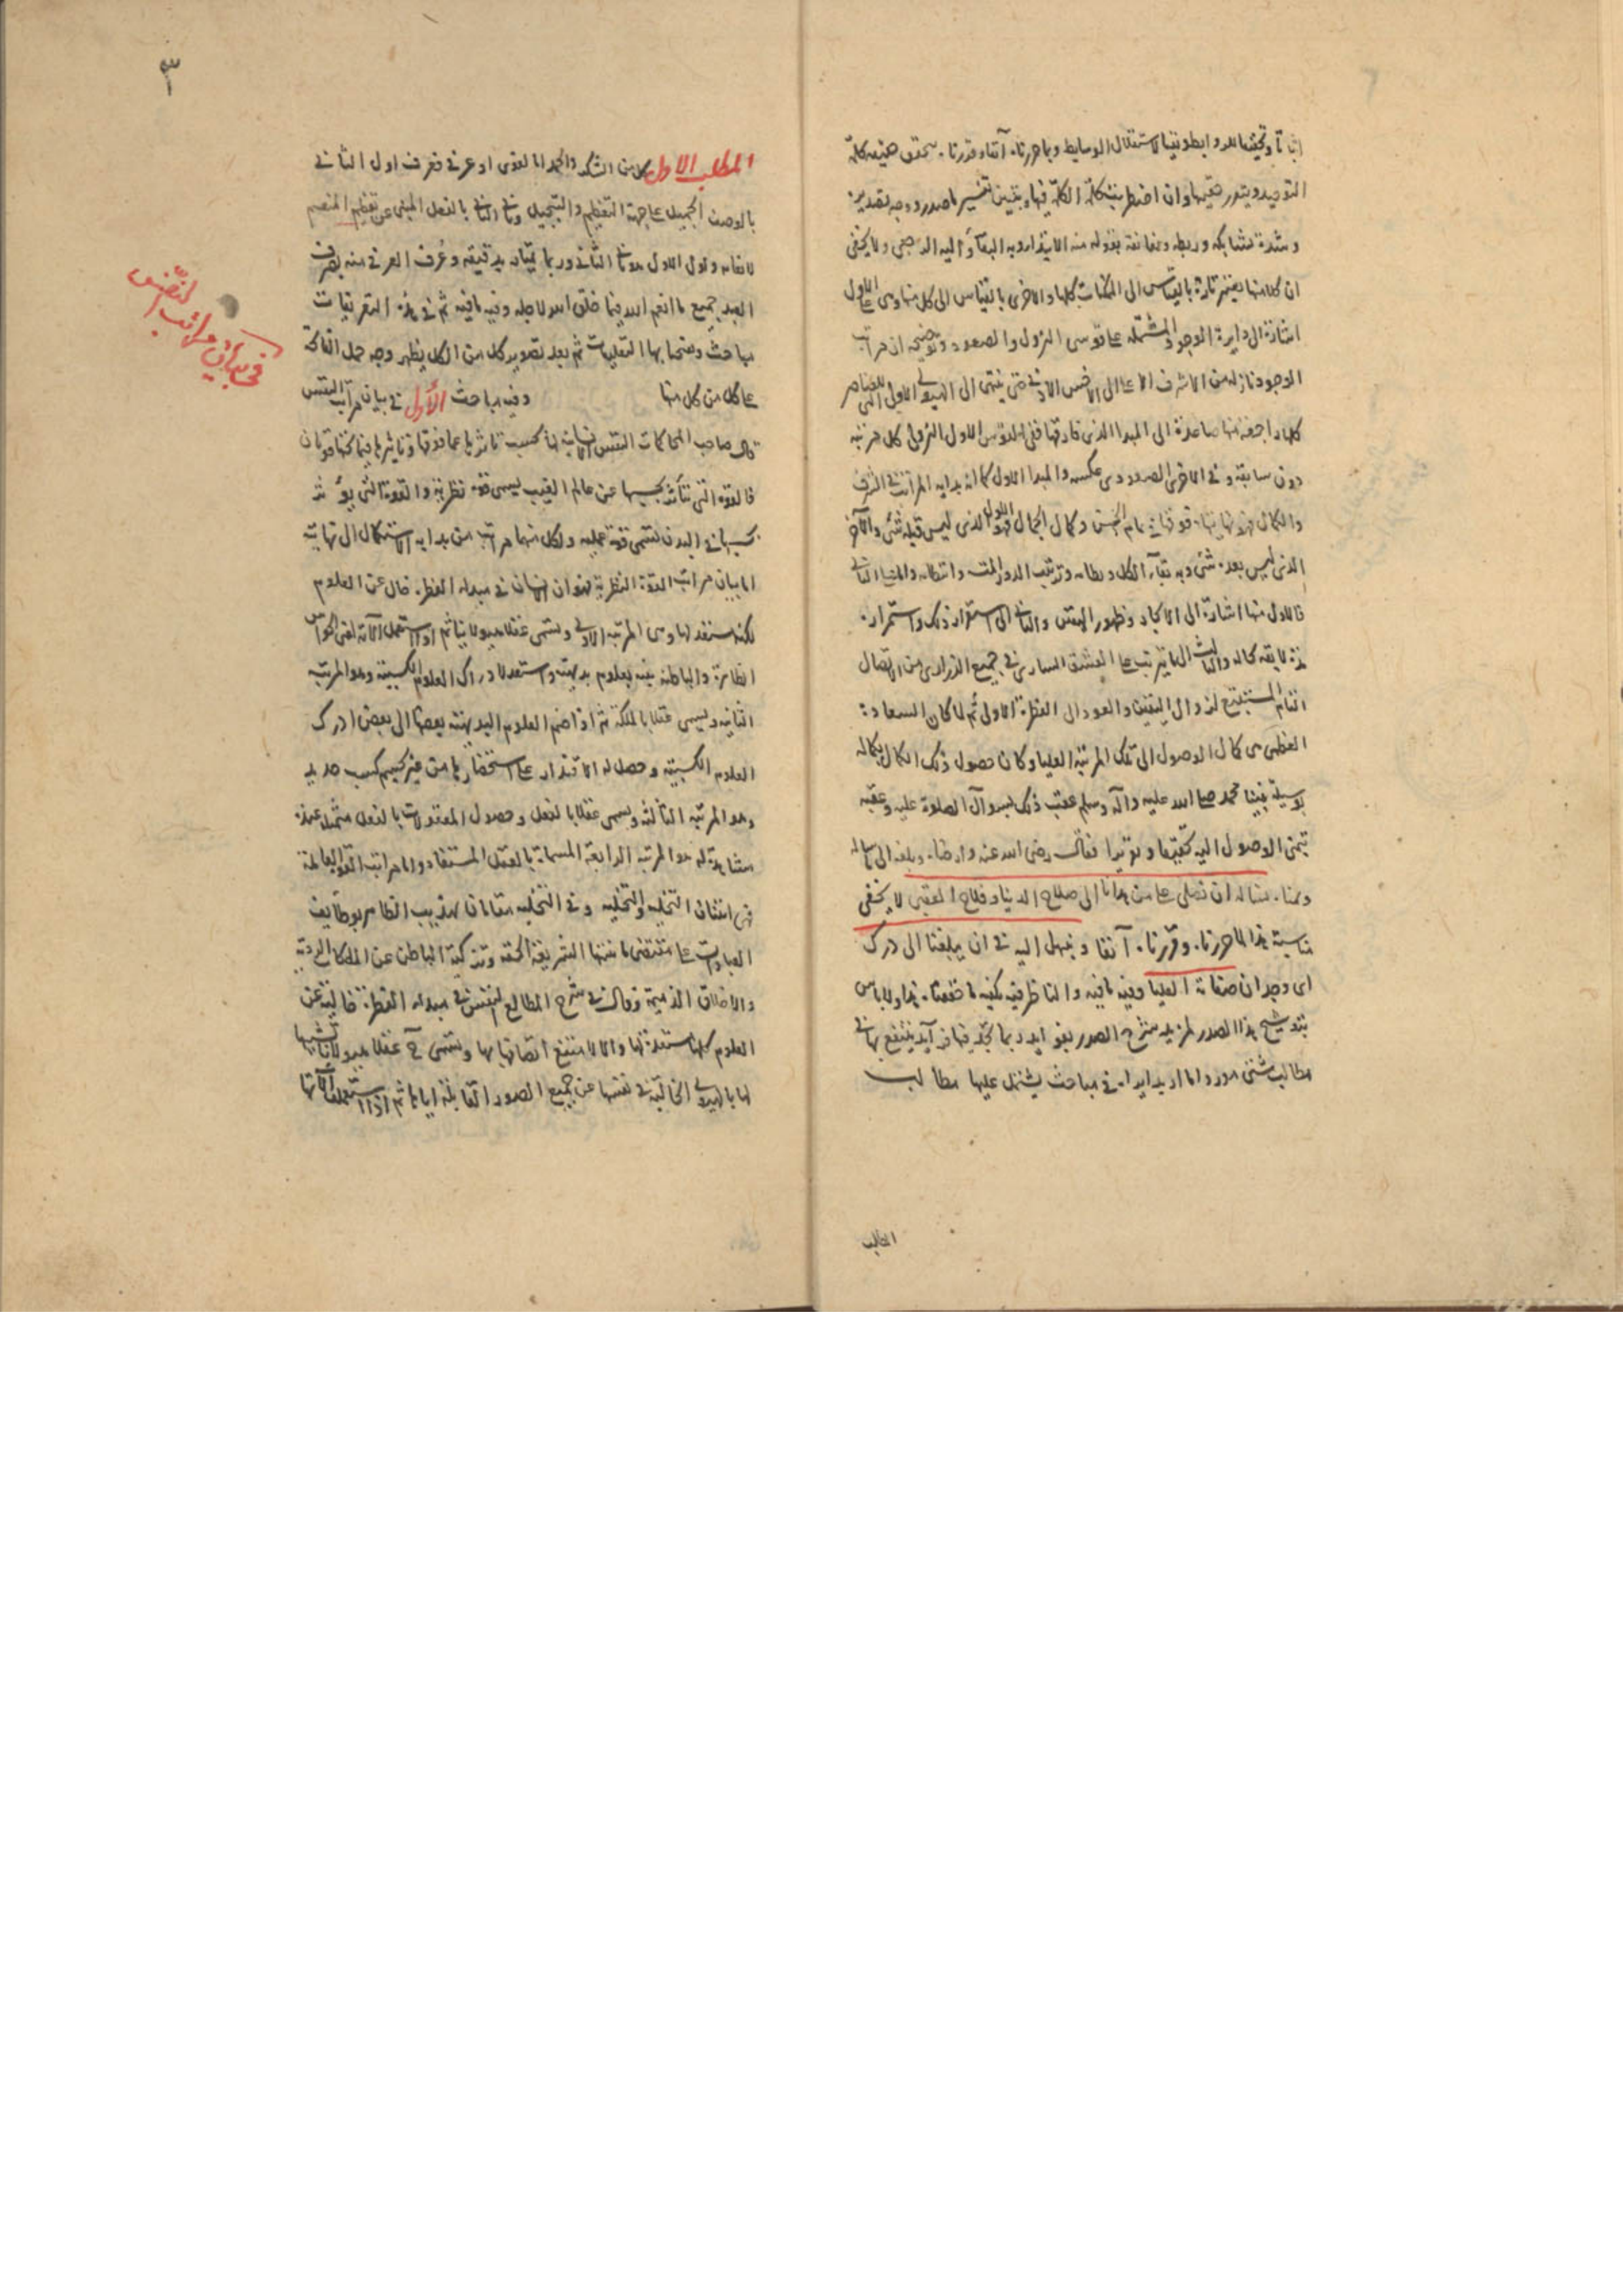 التوحيد ويتدر حقيتها وان اضطربت كلمة الكلمة فيها ويتبين تفسير المصدر ووجه تصديره
وشدة تشابكه وربطه ومعانقة بقوله منه الابتداء وبه البقاء واليه الرجعى ولا يخفى
ان كلا منها يعتبر تارة بالقياس الى الممكنات كلها والاخرى بالقياس الى كل منها وهى على الاول
اشارة الى دايرة الوجود المشتملة على قوسى النزول والصعود وتوضيحه ان مراتب
الوجود نازلة من الاشرف الاعلى الى الاخس الادنى حتى ينتهى الى الهيولى الاولى التى للعناصر
كلها راجعة منها صاعدة الى المبدا الذى فارقتها ففى القوس الاول النزولى كل مرتبة
دون سابقه وفى الاخرى الصعودى عكسه والمبدا الاول كما انه بداية المراتب فى الشرف
والكمال فهو نهايتها فوقها فى تمام الحسن وكمال الجمال فهو الاول الذى ليس قبله شئ والآخر
الذى ليس بعده شئ وبه بقاء الكل ونظامه وترتيب الدور المتسق وانتظامه والما على الثانى
فالاول منها اشارة الى الايجاد وظهور النفس والثانى الى استقرار ذلك واستمراره
مدة لايقة بحاله والثالث الى ما يترتب على العشق السارى فى جميع الذرارى من الاتصال
التام المستتبع لزوال التعين والعود الى الفطرة الاولى ثم لما كان السعادة
العظمى هى كمال الوصول الى تلك المرتبة العليا وكان حصول ذلك الكمال بكماله
بوسيلة نبينا محمد صلى الله عليه وآله وسلم عقب ذلك بسوال الصلوة عليه وعقبه
تيمنى الوصول اليه تحقيقا وتقريرا فقال رضى الله عنه وارضاه وبلغه الى ما له
ومناه نساله ان تصلى على من هدانا الى صلاح الدنيا وفلاح العقبى لا يخفى
مناسبة هذا لما حررنا وقررنا آنفا ونبهل اليه فى ان يبلغنا الى درك
اى وجدان صفاته العليا وفيه ما فيه والناظر فيه يكفيه ما حققنا هذا ولا باس
بتوشيح هذا الصدر لمزيد شرح الصدر بفوايد ربما تجد فيها فرآيد ينتفع بها فى
مطالب شتى موردا ما اريد ايراده فى مباحث يشتمل عليها مطالب
المطلب
٣
المطلب الاول كل من الشكر والحمد اما لغوى او عرفى فعرف اول الثانى
بالوصف الجميل على جهة التعظيم والتبجيل وثانى الثانى بالفعل المبنى عن تعظيم المنعم
لانعامه واول الاول هو ثانى الثانى وربما يقيد بدقيقة وعُرف العرفى منه بصرف
العبد جميع ما انعم الله فيما خلق الله لاجله وفيه ما فيه ثم فى هذه التعريفات
مباحث ثم بعد تصوير كل من الكل يظهر وجه حمل الفاتحة
على كل من كل منها وفيه مباحث الأول فى بيان مراتب النفس
قال صاحب المحاكمات النفس الانسانية لها بحسب تاثرها عما فوقها وتاثيرها فيما تحتها قوتان
فالقوة التى تتأثر بحسبها عن عالم الغيب يسمى قوة نظرية والقوة التى يؤثر
بحسبها فى البدن تسمى قوة عملية ولكل منهما مراتب من بداية الاستكمال الى نهايته
اما بيان مراتب القوة النظرية فهو ان الانسان فى مبداء الفطرة خال عن العلوم
لكنه مستعد لها وهى المرتبة الاولى وتسمى عقلا هيولانيا ثم اذا استعمل الآته اعنى الحواس
الظاهرة والباطنة فيه بعلوم بديهية واستعد لادراك العلوم الكسبية وهو المرتبة
الثانية ويسمى عقلا بالملكة ثم اذا ضم العلوم البديهية بعضها الى بعض ادرك
العلوم الكسبية وحصل له الاقتدار على استحضارها من غير تجشم كسب جديد
وهو المرتبة الثالثة ويسمى عقلا بالفعل وحصول المعقولات بالفعل متمثلة عنده
مشاهدة له هو المرتبة الرابعة المسماة بالعقل المستفاد واما مراتب القوة العاملة
فهى اثنتان التخلية والتحلية وفى التخلية مقامان تهذيب الظاهر بوظايف
العبادات على مقتضى ما سنتها الشريعة الحقة وتزكية الباطن عن الملكات الردية
والاخلاق الذميمة وقال فى شرح المطالع للنفس فى مبداء الفطرة خالية عن
العلوم كلها مستعدة لها والا لامتنع اتصافها بها وتسمى ح عقلا هيولانيا تشبيها
لها بالهيولى الخالية فى نفسها عن جميع الصور القابلة اياها ثم اذا استعملت آلاتها
فى بيان مراتب النفس